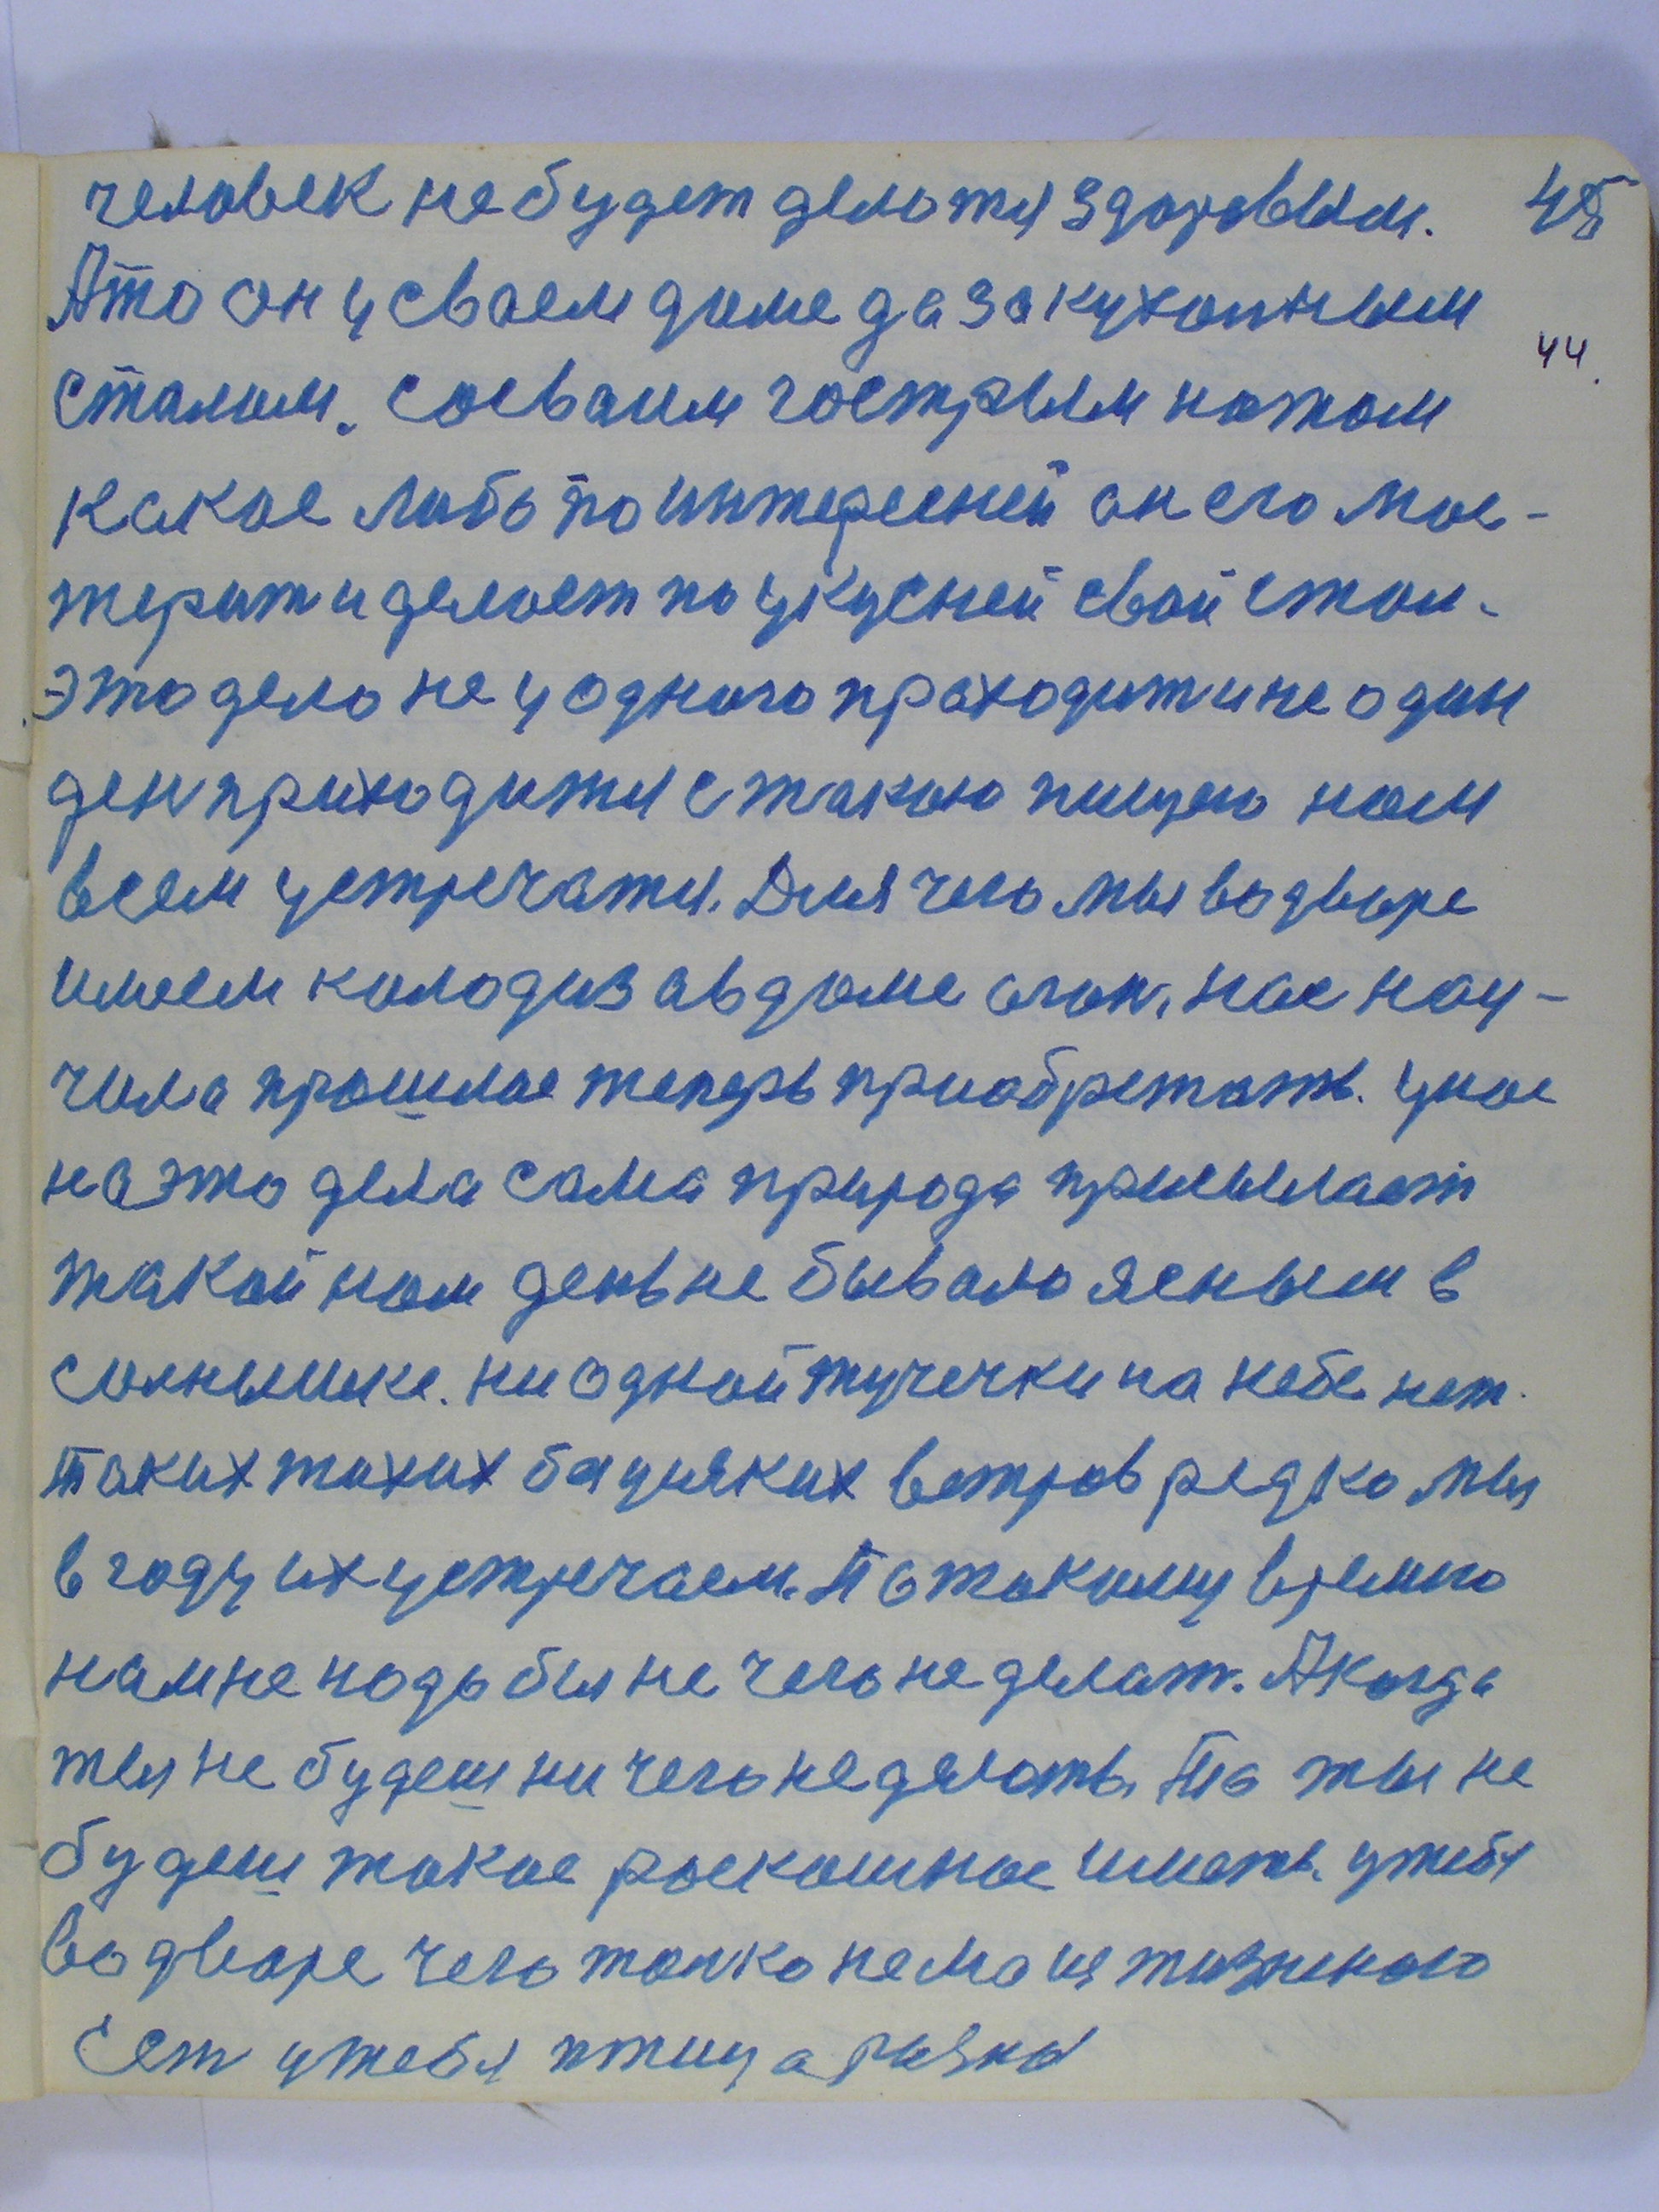 человек не будет делотся здоровым. 45
Ато он у сваем доме да за кухонным
сталом. сосваим гострым ножом 44.
какое либо поинтересней он его мас-
терит и делоет по укусней свой стол.
это дело не у одного праходит и не один
ден приходится с такою пищею нам
всем устречатся. Для чего мы во дворе
имеем колодиз ав доме огон, нас нау-
чила прошлое теперь приобретать. унас
на это дела сама природа присылает
такой нам день не бывало ясным в
солнышке. ни одной тучечки на небе нет.
таких тихих бауцяких ветров редко мы
в году их устречаем. По такому времю
нам не надо бы не чего не делат. А когда
ты не будеш ни чего не делоть. То ты не
будеш такое роскошное иметь. утебя
во дворе чего толко нема из живного
Ест утебя птица разна